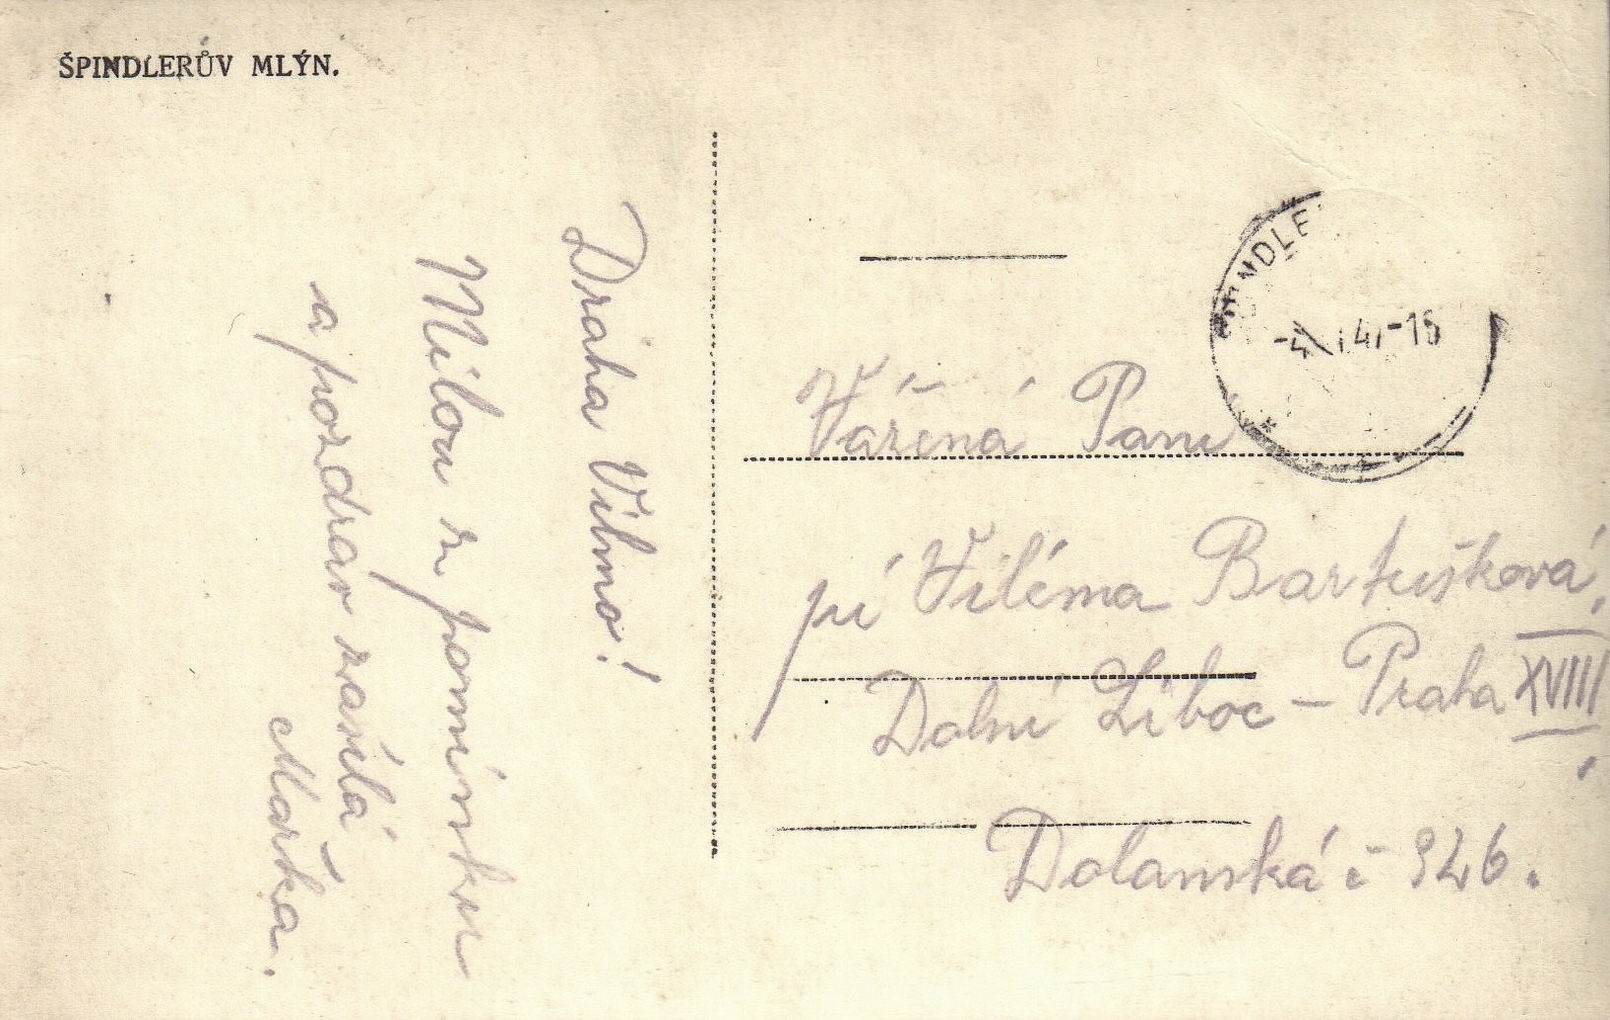 ŠPINDLERŮV MLÝN.
Drahá Vilmo!
Milou vzpomínku
a pozdrav zasílá
Mařka.
NDLE
47-15
Vážená Paní
pí Viléma Bartušková,
Dolní Liboc – Praha XVIII,
Dolanská č 926.